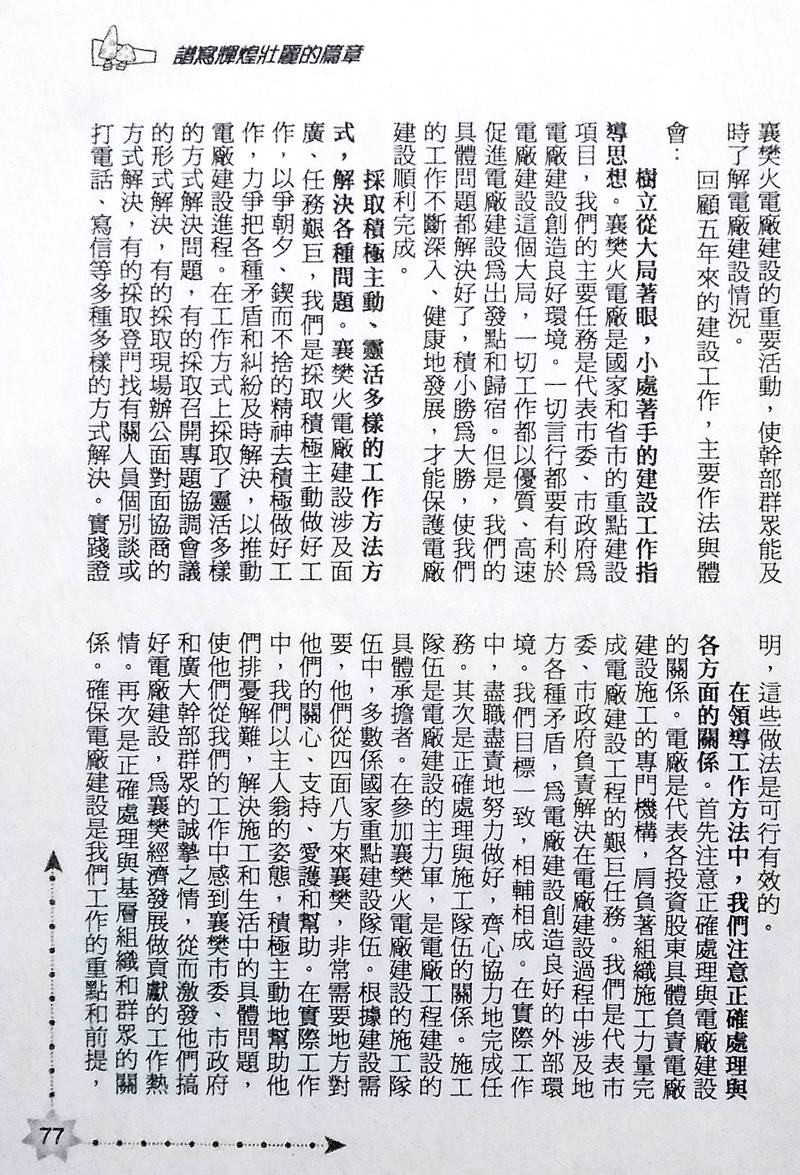 譜寫輝煌壯麗的篇章
襄樊火電廠建設的重要活動，使幹部群眾能及
時了解電廠建設情況。
回顧五年來的建設工作，主要作法與體
會：
樹立從大局著眼，小處著手的建設工作指
導思想。襄樊火電廠是國家和省市的重點建設
項目，我們的主要任務是代表市委、市政府爲
電廠建設創造良好環境。一切言行都要有利於
電廠建設這個大局，一切工作都以優質、高速
促進電廠建設爲出發點和歸宿。但是，我們的
具體問題都解決好了，積小勝爲大勝，使我們
的工作不斷深入、健康地發展，才能保護電廠
建設順利完成。
採取積極主動、靈活多樣的工作方法方
式，解決各種問題。襄樊火電廠建設涉及面
廣、任務艱巨，我們是採取積極主動做好工
作，以爭朝夕、鍥而不捨的精神去積極做好工
作，力爭把各種矛盾和糾紛及時解決，以推動
電廠建設進程。在工作方式上採取了靈活多樣
的方式解決問題，有的採取召開專題協調會議
的形式解決，有的採取現場辦公面對面協商的
方式解決，有的採取登門找有關人員個別談或
打電話、寫信等多種多樣的方式解決。實踐證
明，這些做法是可行有效的。
在領導工作方法中，我們注意正確處理與
各方面的關係。首先注意正確處理與電廠建設
的關係。電廠是代表各投資股東具體負責電廠
建設施工的專門機構，肩負著組織施工力量完
成電廠建設工程的艱巨任務。我們是代表市
委、市政府負責解決在電廠建設過程中涉及地
方各種矛盾，爲電廠建設創造良好的外部環
境。我們目標一致，相輔相成。在實際工作
中，盡職盡責地努力做好，齊心協力地完成任
務。其次是正確處理與施工隊伍的關係。施工
隊伍是電廠建設的主力軍，是電廠工程建設的
具體承擔者。在參加襄樊火電廠建設的施工隊
伍中，多數係國家重點建設隊伍。根據建設需
要，他們從四面八方來襄樊，非常需要地方對
他們的關心、支持、愛護和幫助。在實際工作
中，我們以主人翁的姿態，積極主動地幫助他
們排憂解難，解決施工和生活中的具體問題，
使他們從我們的工作中感到襄樊市委、市政府
和廣大幹部群眾的誠摯之情，從而激發他們搞
好電廠建設，爲襄樊經濟發展做貢獻的工作熱
情。再次是正確處理與基層組織和群眾的關
係。確保電廠建設是我們工作的重點和前提，
77